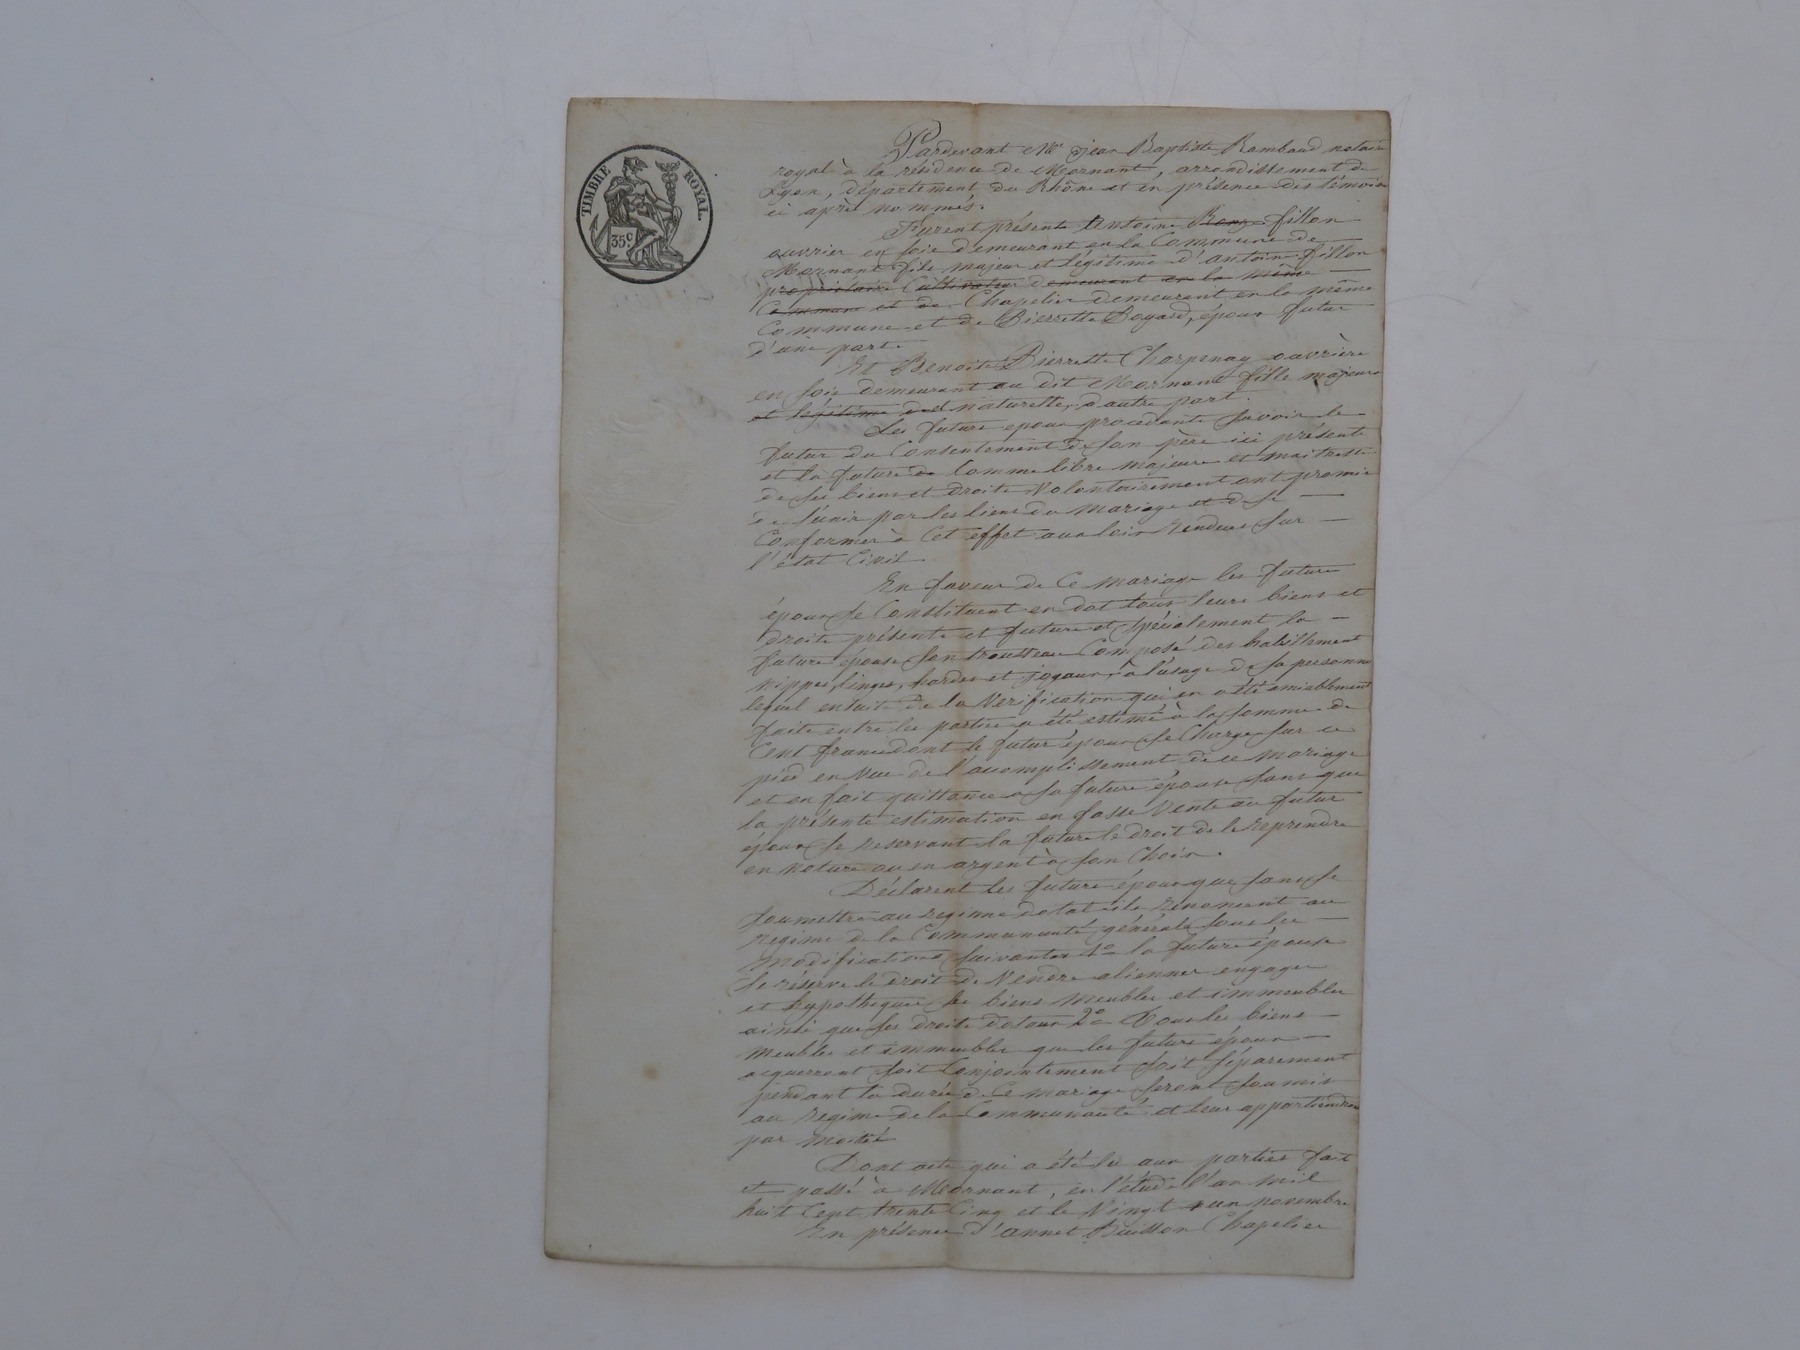 TIMBRE ROYAL.
35c
Pardevant Me jean Baptiste Rambaud notaire
royal à la résidence de Mornant, arrondissement de
Lyon, département du Rhône et en présence des témoins
ci après nommés.
Furent présents Antoine fillon
ouvrier en soie demeurant en la Commune de
Mornant fils majeur et légitime d'antoine fillon
propriétaire Cultivateur demeurant en la même
Commune et de Chapelier demeurant en la même
Commune et de Pierrette Bogard, époux futur
d'une part.
Et Benoite Pierrette Charpenay ouvrière
en soie demeurant au dit Mornant fille majeure
et légitime d et naturelle, d'autre part.
Les futurs epoux procédants savoir le
futur du Consentement de son père ici présent
et la future de Comme libre majeure et maitresse
de ses biens et droits Volontairement ont promis
de s'unir par les liens du mariage et de se
Conformer à Cet effet aux lois rendues sur
l'état Civil.
En faveur de Ce mariage les futurs
époux se Constituent en dot tous leurs biens et
droits présents et futurs et spécialement la
future épouse son trousseau Composé des habillements
nippes, linges, hardes et joyaux, à l'usage de sa personne
lequel ensuite de la Verification qui en a été amiablement
faite entre les parties a été estimé à la somme de
Cent francs dont le futur époux se Charge sur ce
pied en vue de l'accomplissement de ce mariage
et en fait quittance a sa future épouse sans que
la présente estimation en fasse Vente au futur
époux se reservant la future le droit de le reprendre
en nature ou en argent à son Choix.
Déclarent les futurs époux que sans se
soumettre au regime dotal ils renoncent au
regime de la Communauté générale sous les
modifications suivantes 1o la future épouse
se réserve le droit de Vendre alienner engager
et hypothequer ses biens meubles et immeubles
ainsi que ses droits dotaux 2o Tous les biens
meubles et immeubles que les futurs époux
acquerront soit Conjointement soit séparement
pendant la durée de Ce mariage seront soumis
au regime de la Communauté et leur appartiendront
par moitié
Dont acte qui a été lu aux parties fait
et passé à Mornant, en l'étude l'an mil
huit Cent trente Cinq et le Vingt un novembre
En présence d'annet Buisson Chapelier